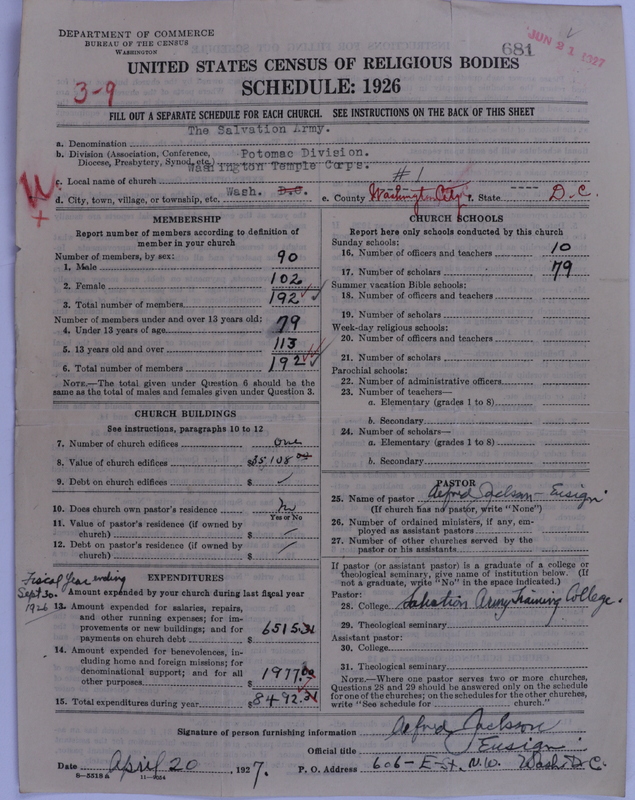 DEPARTMENT OF COMMERCE
BUREAU OF THE CENSUS
WASHINGTON
681
JUN 21 1927
UNITED STATES CENSUS OF RELIGIOUS BODIES
SCHEDULE: 1926
3-9
FILL OUT A SEPARATE SCHEDULE FOR EACH CHURCH. SEE INSTRUCTIONS ON THE BACK OF THIS SHEET
a. Denomination The Salvation Army.
b. Division (Association, Conference, Diocese, Presbytery, Synod, etc.) Potomac Division.
c. Local name of church Washington Temple Corps. #1
d. City, town, village, or township, etc. Wash. D.C. e. County Washington City f. State ---- D.C.
MEMBERSHIP
Report number of members according to definition of
member in your church
Number of members, by sex:
1. Male 90
2. Female 102
3. Total number of members 192
Number of members under and over 13 years old:
4. Under 13 years of age 79
5. 13 years old and over 113
6. Total number of members 192
NOTE.—The total given under Question 6 should be the
same as the total of males and females given under Question 3.
CHURCH BUILDINGS
See instructions, paragraphs 10 to 12
7. Number of church edifices one
8. Value of church edifices $35,108.00
9. Debt on church edifices $
10. Does church own pastor's residence? no
Yes or No
11. Value of pastor's residence (if owned by
church) $
12. Debt on pastor's residence (if owned by
church) $
Fiscal Year ending
Sept 30.
1926
EXPENDITURES
Amount expended by your church during last fiscal year
13. Amount expended for salaries, repairs,
and other running expenses; for im-
provements or new buildings; and for
payments on church debt $ 6515.31
14. Amount expended for benevolences, in-
cluding home and foreign missions; for
denominational support; and for all
other purposes $ 1977.00
15. Total expenditures during year $8492.31
CHURCH SCHOOLS
Report here only schools conducted by this church
Sunday schools:
16. Number of officers and teachers 10
17. Number of scholars 79
Summer vacation Bible schools:
18. Number of officers and teachers
19. Number of scholars
Week-day religious schools:
20. Number of officers and teachers
21. Number of scholars
Parochial schools:
22. Number of administrative officers
23. Number of teachers—
a. Elementary (grades 1 to 8)
b. Secondary
24. Number of scholars—
a. Elementary (grades 1 to 8)
b. Secondary
PASTOR
25. Name of pastor Alfred Jackson - Ensign
(If church has no pastor, write "None")
26. Number of ordained ministers, if any, em-
ployed as assistant pastors
27. Number of other churches served by the
pastor or his assistants
If pastor (or assistant pastor) is a graduate of a college or
theological seminary, give name of institution below. (If
not a graduate, write "No" in the space indicated.)
Pastor:
28. College Salvation Army Training College.
29. Theological seminary
Assistant pastor:
30. College
31. Theological seminary
NOTE.—Where one pastor serves two or more churches,
Questions 28 and 29 should be answered only on the schedule
for one of the churches; on the schedules for the other churches,
write "See schedule for ________ church."
Signature of person furnishing information Alfred Jackson
Official title Ensign
Date April 20, 1927. P. O. Address 606-E-St. N.W. Wash D.C.
8—5518a 11—9054